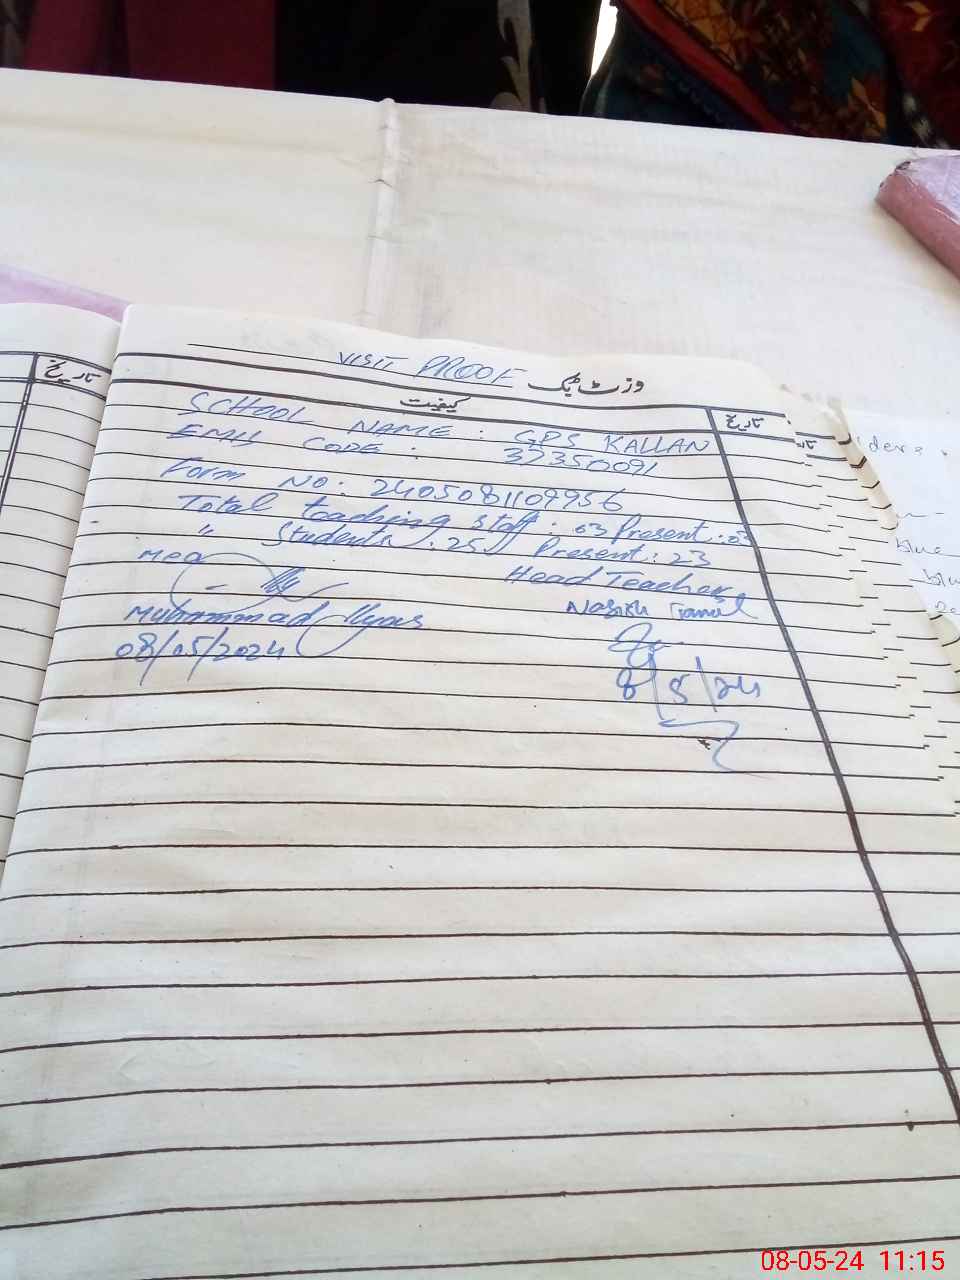 تاریخ
VISIT PROOF وزٹ بک
کیفیت
تاریخ
SCHOOL NAME : GPS KALLAN
EMIS CODE : 37350091
Form NO: 2405081109956
Total teaching staff : 03 Present : 03
" Students : 25 Present : 23
MEA
Head Teacher
Muhammad Ilyas
08/05/2024
8/5/24
blue
08-05-24 11:15